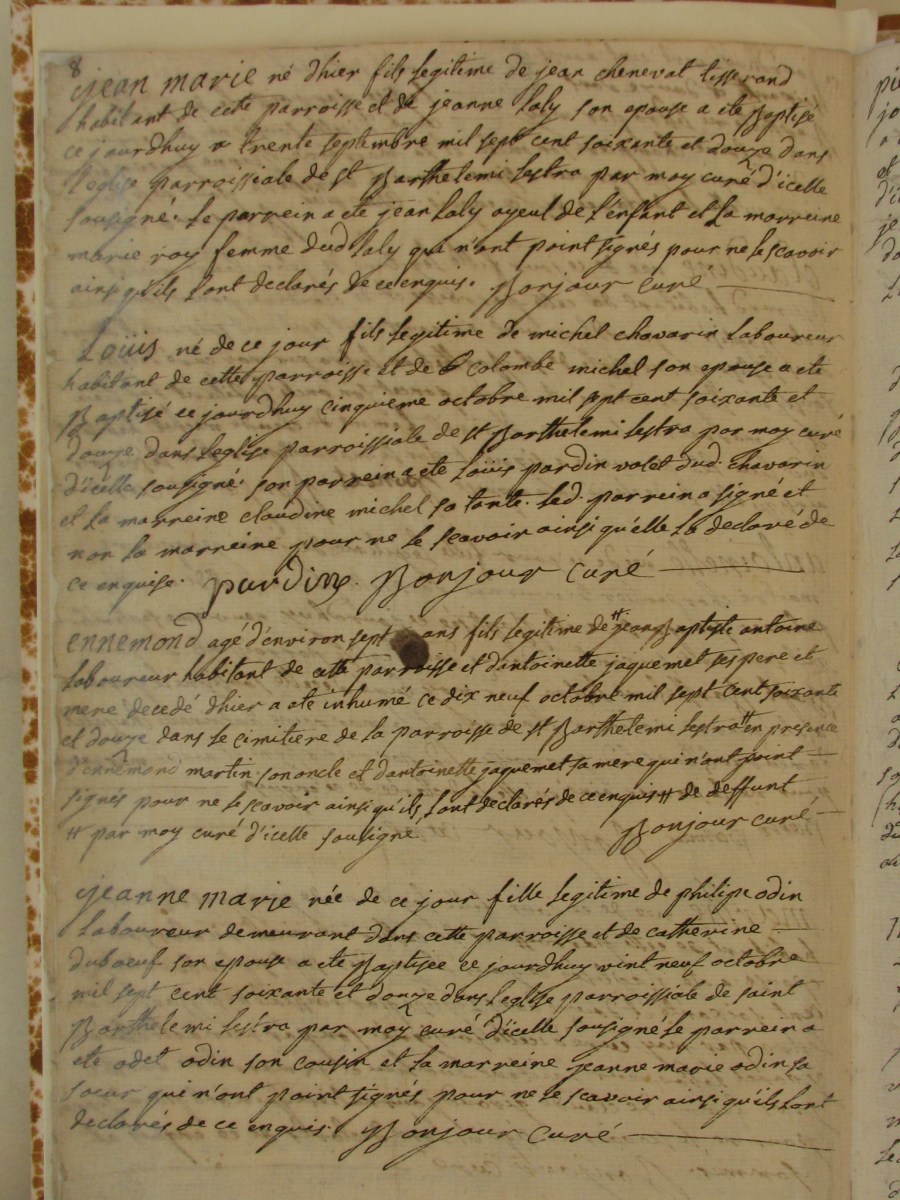 8
jean marie né d'hier fils legitime de jean chenevat tisserand
habitant de cette parroisse et de jeanne laly son epouse a ete Baptisé
ce jourdhuy trente septembre mil sept cent soixante et douze dans
l'eglise parroissiale de st Barthelemi lestra par moy curé d'icelle
sousigné. le parrein a ete jean laly ayeul de l'enfant et la marreine
marie roy femme dud laly qui n'ont point signés pour ne le scavoir
ainsi qu'ils l'ont declarés de ce enquis. Bonjour curé
Loüis né de ce jour fils legitime de michel chavarin laboureur
habitant de cette parroisse et de colombe michel son epouse a ete
Baptisé ce jourdhuy cinquieme octobre mil sept cent soixante et
douze dans l'eglise parroissiale de st Barthelemi lestra par moy curé
d'icelle sousigné. son parrein a ete Loüis pardin valet dud. chavarin
et la marreine claudine michel sa tante. led. parrein a signé et
non la marreine pour ne le scavoir ainsi qu'elle l'a declaré de
ce enquise. pardin. Bonjour curé
ennemond agé d'environ sept ans fils legitime de # jean Baptiste antoine
laboureur habitant de cette parroisse et d'antoinette jaquemet ses pere et
mere decedé d'hier a ete inhumé ce dix neuf octobre mil sept cent soixante
et douze dans le cimitiere de la parroisse de st Barthelemi lestra # en presence
d'ennemond martin son oncle et d'antoinette jaquemet sa mere qui n'ont point
signés pour ne le scavoir ainsi qu'ils l'ont declarés de ce enquis # de deffunt
# par moy curé d'icelle sousigné Bonjour curé
jeanne marie née de ce jour fille legitime de philipe odin
laboureur demeurant dans cette parroisse et de catherine
duboeuf son epouse a ete Baptisee ce jourdhuy vint neuf octobre
mil sept cent soixante et douze dans l'eglise parroissiale de saint
Barthelemi lestra par moy curé d'icelle sousigné le parrein a
ete odet odin son cousin et la marreine jeanne marie odin sa
soeur qui n'ont point signés pour ne le scavoir ainsi qu'ils l'ont
declarés de ce enquis. Bonjour curé